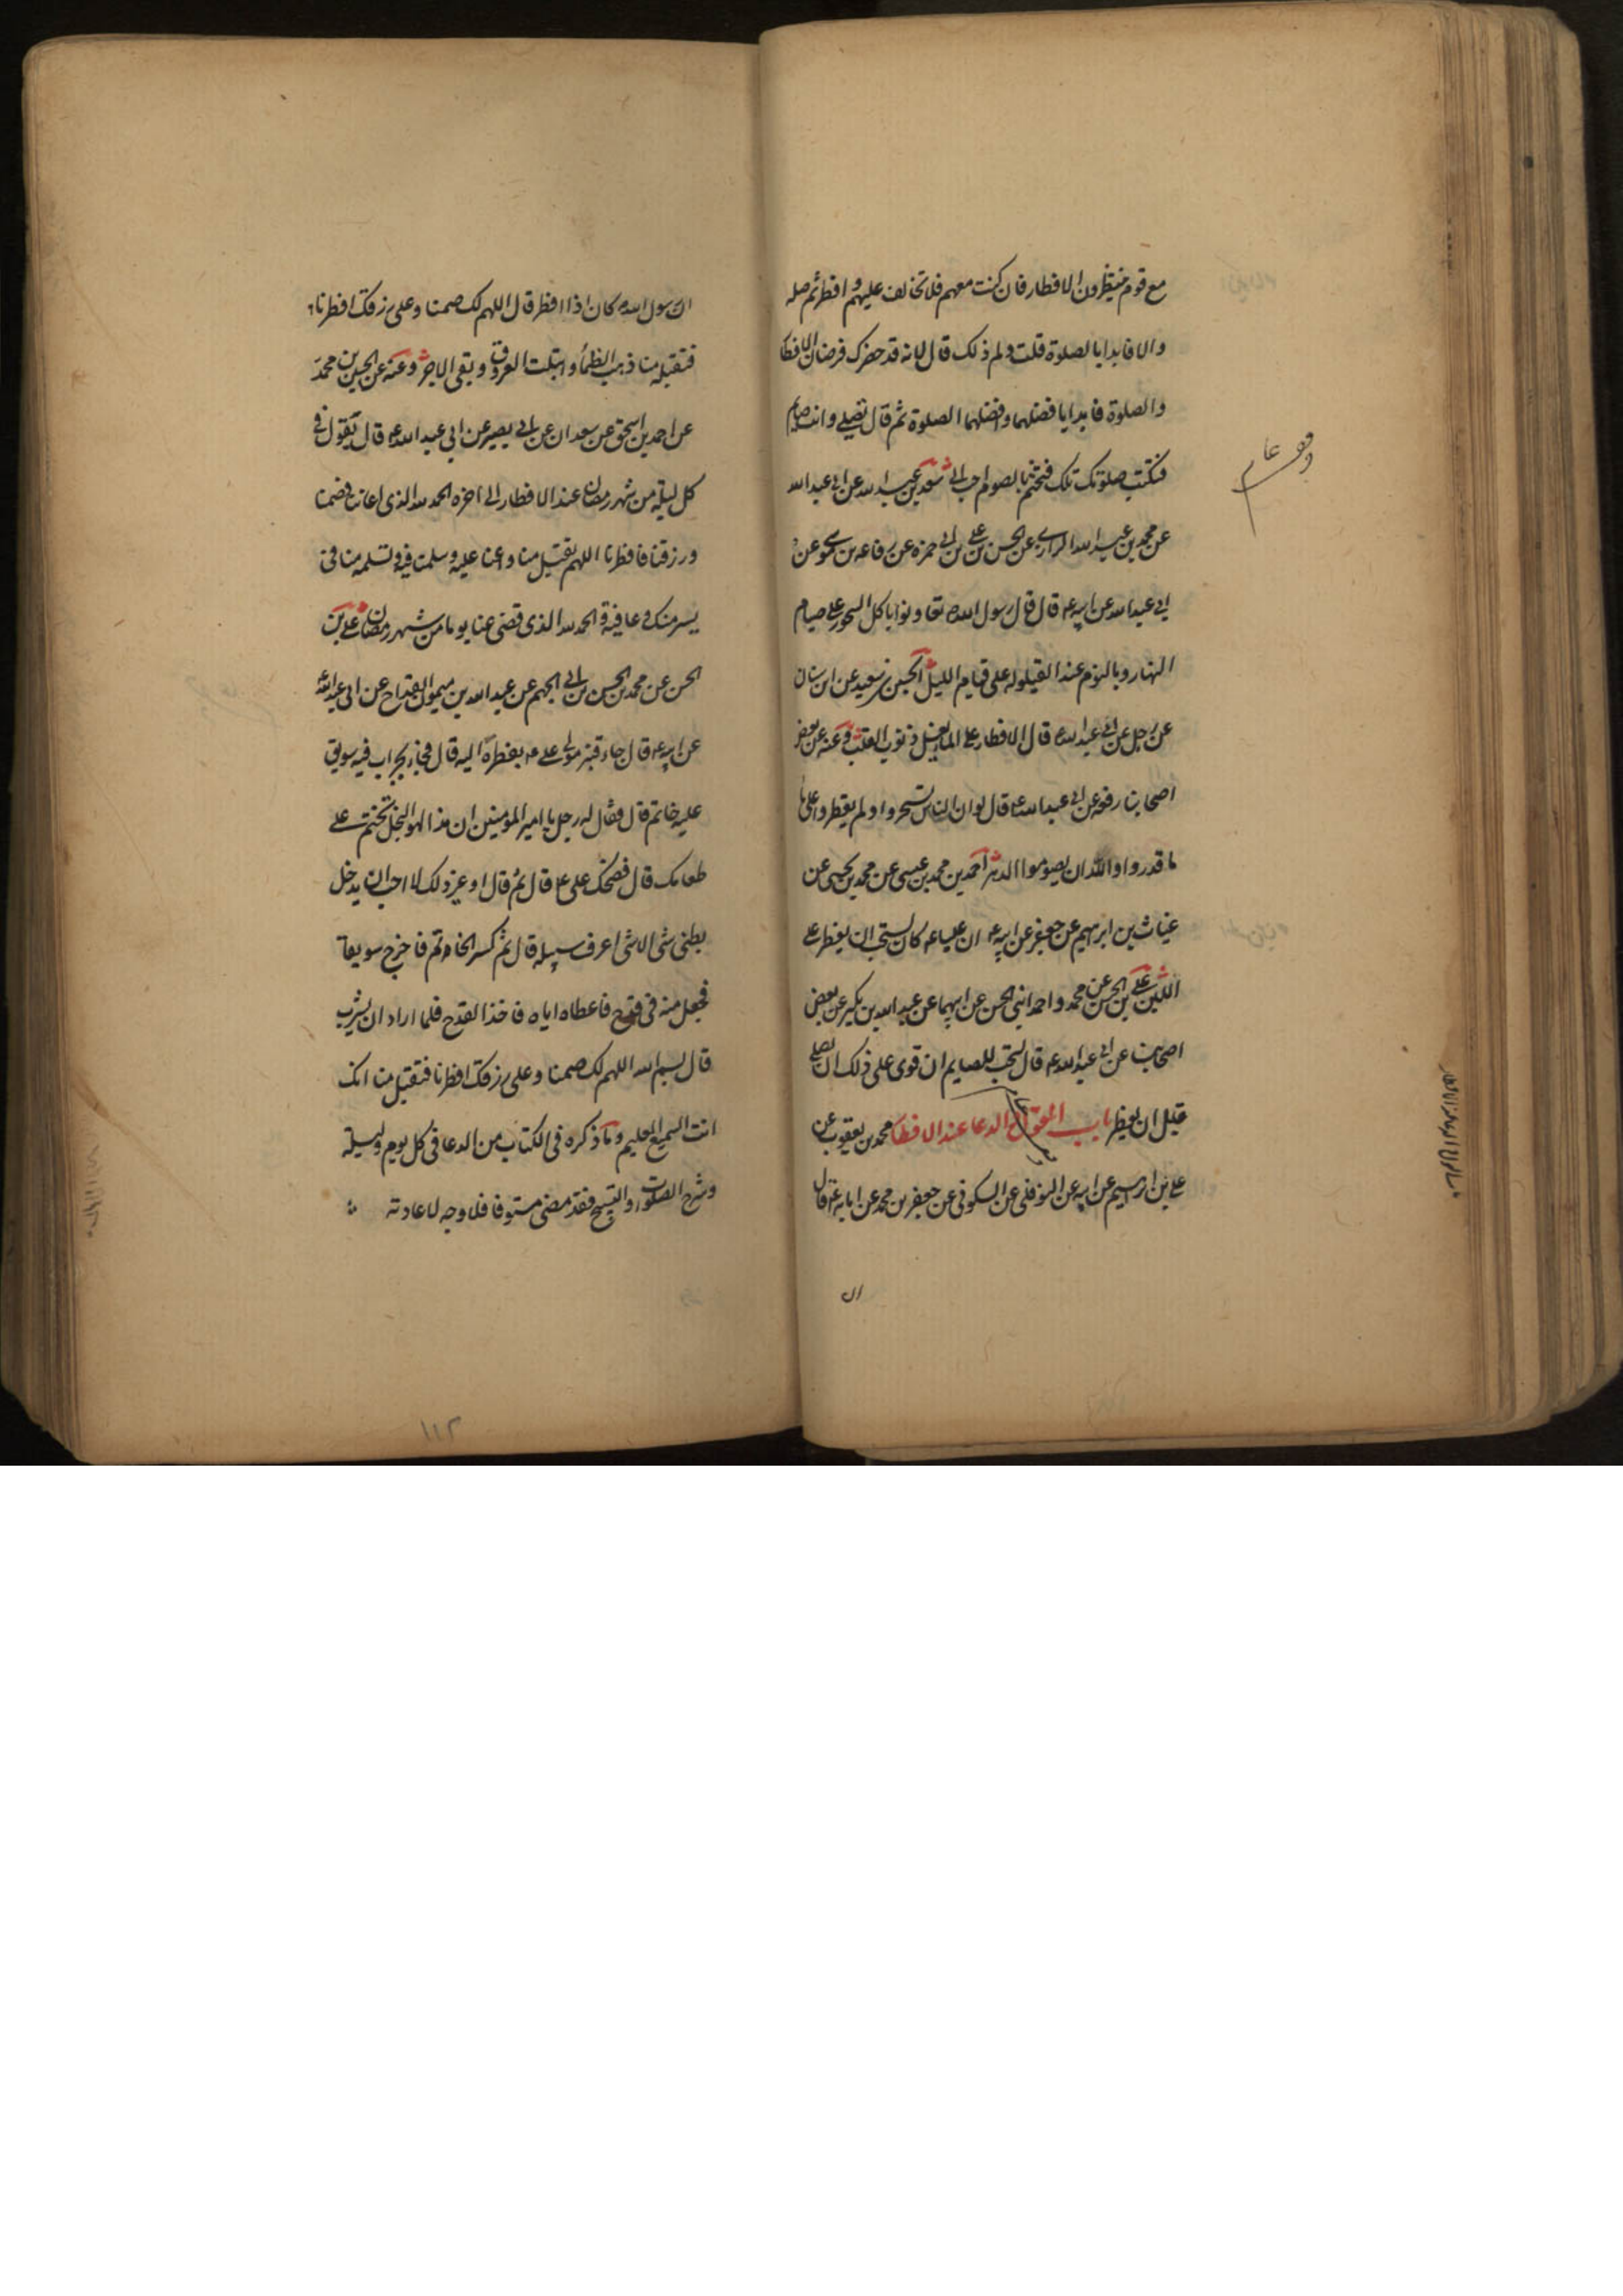 مع قوم منتظرون الافطار فان كنت معهم فلا تخالف عليهم و افطر ثم صله
والا فابدا بالصلوة قلت ولم ذلك قال لانه قد حضرك فرضان الافطا
والصلوة فابدا بافضلهما وافضلهما الصلوة ثم قال تصلي وانت صايم
فتكتب صلوتك تلك فتختم بالصوم احب الي سعد بن عبد الله عن ابي عبد الله
عن محمد بن عبد الله الرازي عن الحسن بن علي بن ابي حمزه عن رفاعه بن موسى عن
ابي عبد الله عن ابيه ع قال قال رسول الله تعاونوا باكل السحور على صيام
النهار وبالنوم عند القيلوله على قيام الليل الحسين بن سعيد عن ابن سنان
عن رجل عن ابي عبد الله ع قال الافطار على الماء يغسل ذنوب القلب وعنه عن بعض
اصحابنا رفعه عن ابي عبد الله ع قال لو ان الناس تسحروا و لم يفطروا على ما
ما قدروا والله ان يصوموا الدهر احمد بن محمد بن عيسى عن محمد بن يحيى عن
غياث بن ابرهيم عن جعفر عن ابيه ع ان عليا ع كان يستحب ان يفطر على
اللبن علي بن الحسن عن محمد و احمد ابني الحسن عن ابيهما عن عبد الله بن بكير عن بعض
اصحابنا عن ابي عبد الله ع قال يستحب للصايم ان قوى على ذلك ان يصلي
قبل ان يفطر باب القول و الدعا عند الافطا محمد بن يعقوب عن
علي بن ابرهيم عن ابيه عن النوفلي عن السكوني عن جعفر بن محمد عن ابايه ع قال
ان
ان رسول الله كان اذا افطر قال اللهم لك صمنا وعلى رزقك افطرنا
فتقبله منا ذهب الظمأ وابتلت العروق وبقى الاجر وعنه عن الحسين بن محمد
عن احمد بن اسحق عن سعدان عن ابي بصير عن ابي عبد الله ع قال تقول في
كل ليلة من شهر رمضان عند الافطار الى اخره الحمد لله الذى اعاننا فصمنا
ورزقنا فافطرنا اللهم تقبل منا واعنا عليه وسلمنا فيه وتسلمه منا في
يسر منك وعافية الحمد لله الذى قضى عنا يوما من شهر رمضان علي بن
الحسن عن محمد بن الحسن بن ابي الجهم عن عبد الله بن ميمون القداح عن ابي عبد الله
عن ابيه ع قال جاء قنبر مولى علي ع بفطره اليه قال فجاء بجراب فيه سويق
عليه خاتم قال فقال له رجل يا امير المومنين ان هذا لهو البخل تختم على
طعامك قال فضحك علي ع قال ثم قال او غير ذلك لا احب ان يدخل
بطنى شى الا شى اعرف سبيله قال ثم كسر الخاتم فاخرج سويقا
فجعل منه في قدح فاعطاه اياه فاخذ القدح فلما اراد ان يشرب
قال بسم الله اللهم لك صمنا وعلى رزقك افطرنا فتقبل منا انك
انت السميع العليم وما ذكره في الكتاب من الدعا في كل يوم وليلة
وشرح الصلوات والتسبيح فقد مضى مستوفا فلا وجه لاعادته
١١٢